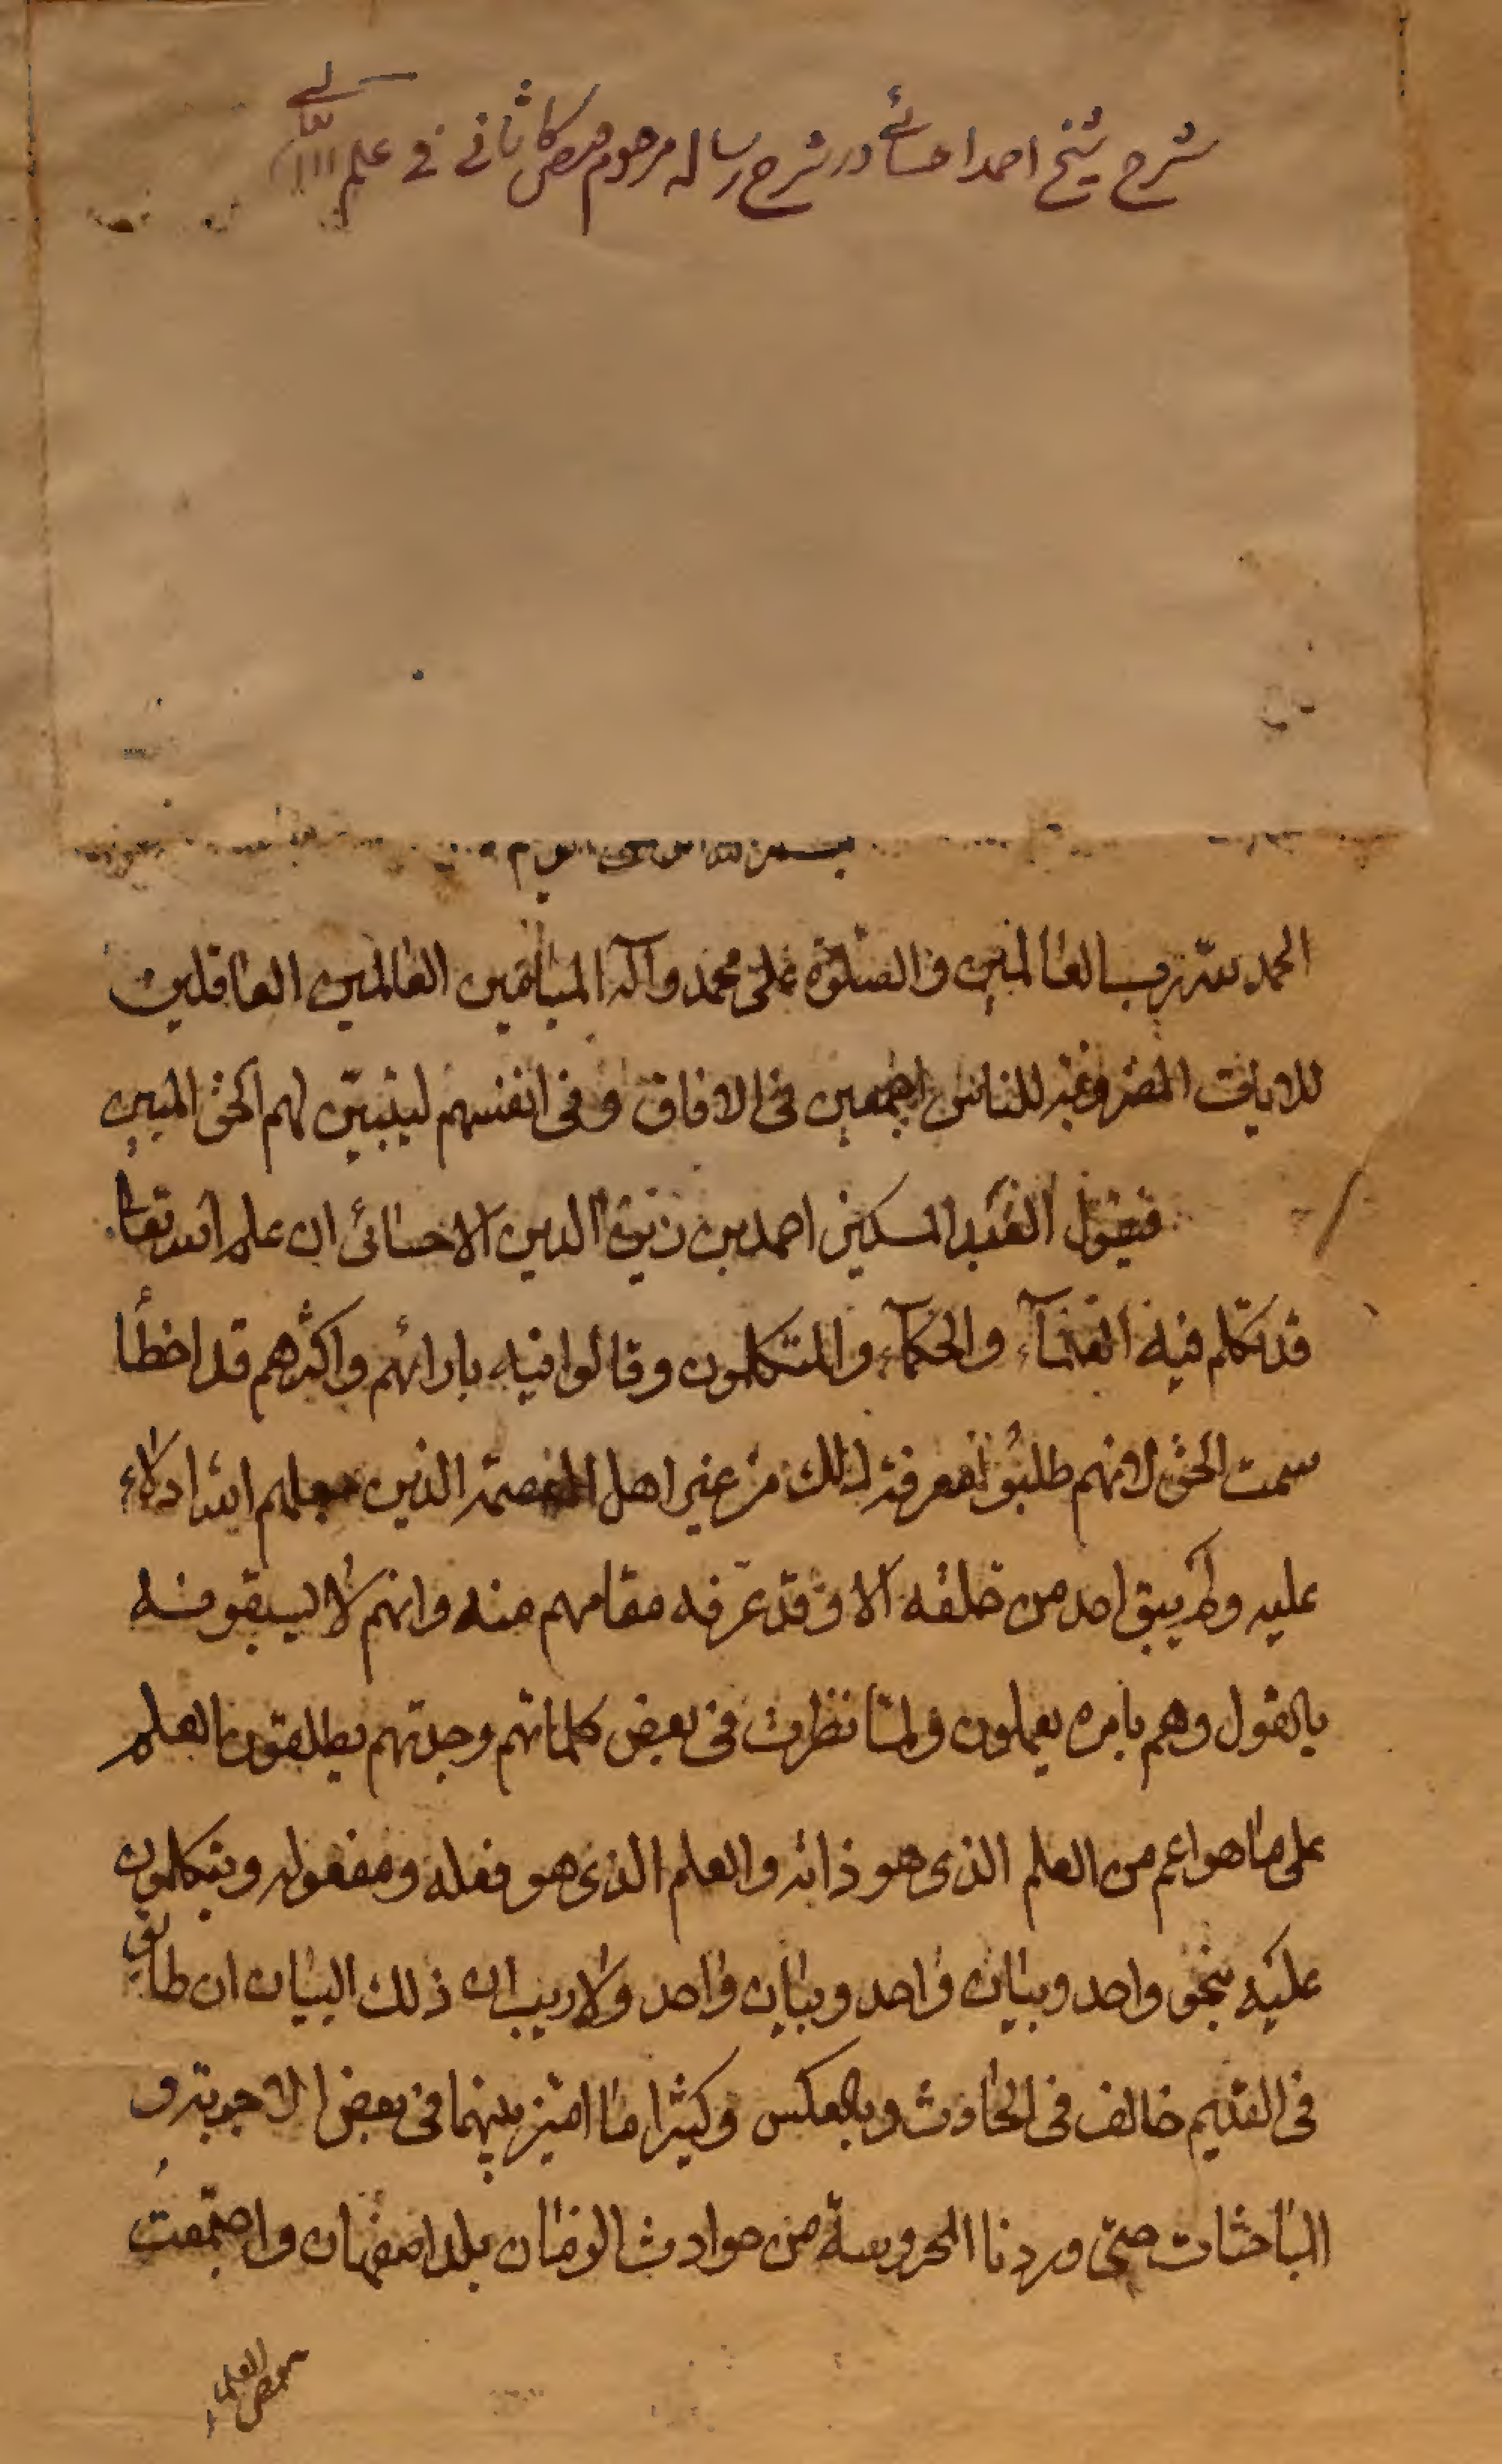 شرح شيخ احمد احسائے در شرح رساله مرحوم فيض كاشانے فے علم الله تعالے
الحمد لله رب العالمين والصلوة على محمد وآله العالمين العاقلين
للايات المضروبة للناس اجمعين فى الافاق وفى انفسهم ليتبين لهم الحق المبين
فيقول العبد المسكين احمد بن زين الدين الاحسائى ان علم الله تعالى
قد تكلم فيه العلمآء والحكمآء والمتكلمون وقالوا فيه بارائهم واكثرهم قد اخطأ
سمت الحق لانهم طلبوا معرفة ذلك من غير اهل العصمة الذين جعلهم الله ادلاء
عليه ولم يبق احد من خلقه الا وقد عرفه مقامهم منه وانهم لا يسبقونه
بالقول وهم بامره يعملون ولما نظرت فى بعض كلماتهم وجدتهم يطلقون العلم
على ما هو اعم من العلم الذى هو ذاته والعلم الذى هو فعله ومفعوله ويتكلمون
عليه بنحو واحد وبيان واحد وبيان واحد ولا ريب ان ذلك البيان ان طابق
فى القديم خالف فى الحادث وبالعكس وكثيرا ما اميز بينهما فى بعض الاجوبة و
المباحثات حتى وردنا المحروسة من حوادث الزمان بلد اصفهان واجتمعت
ببعض العلماء